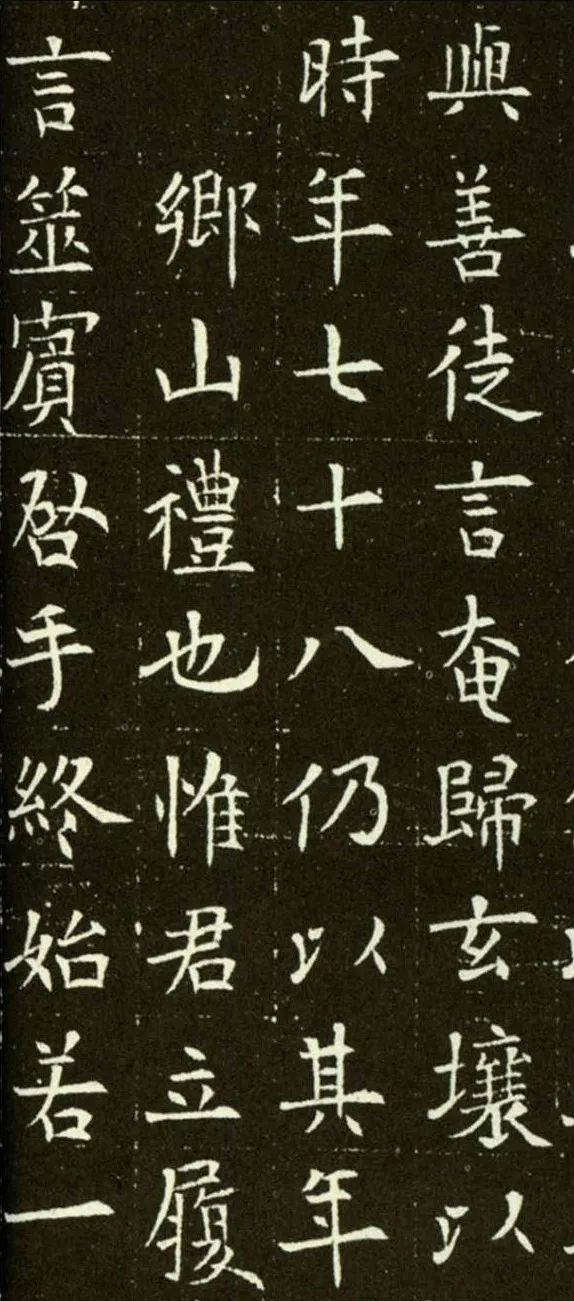 與善徒言奄歸玄壤以
時年七十八仍以其年
鄉山禮也惟君立履
言筮賓啓手終始若一